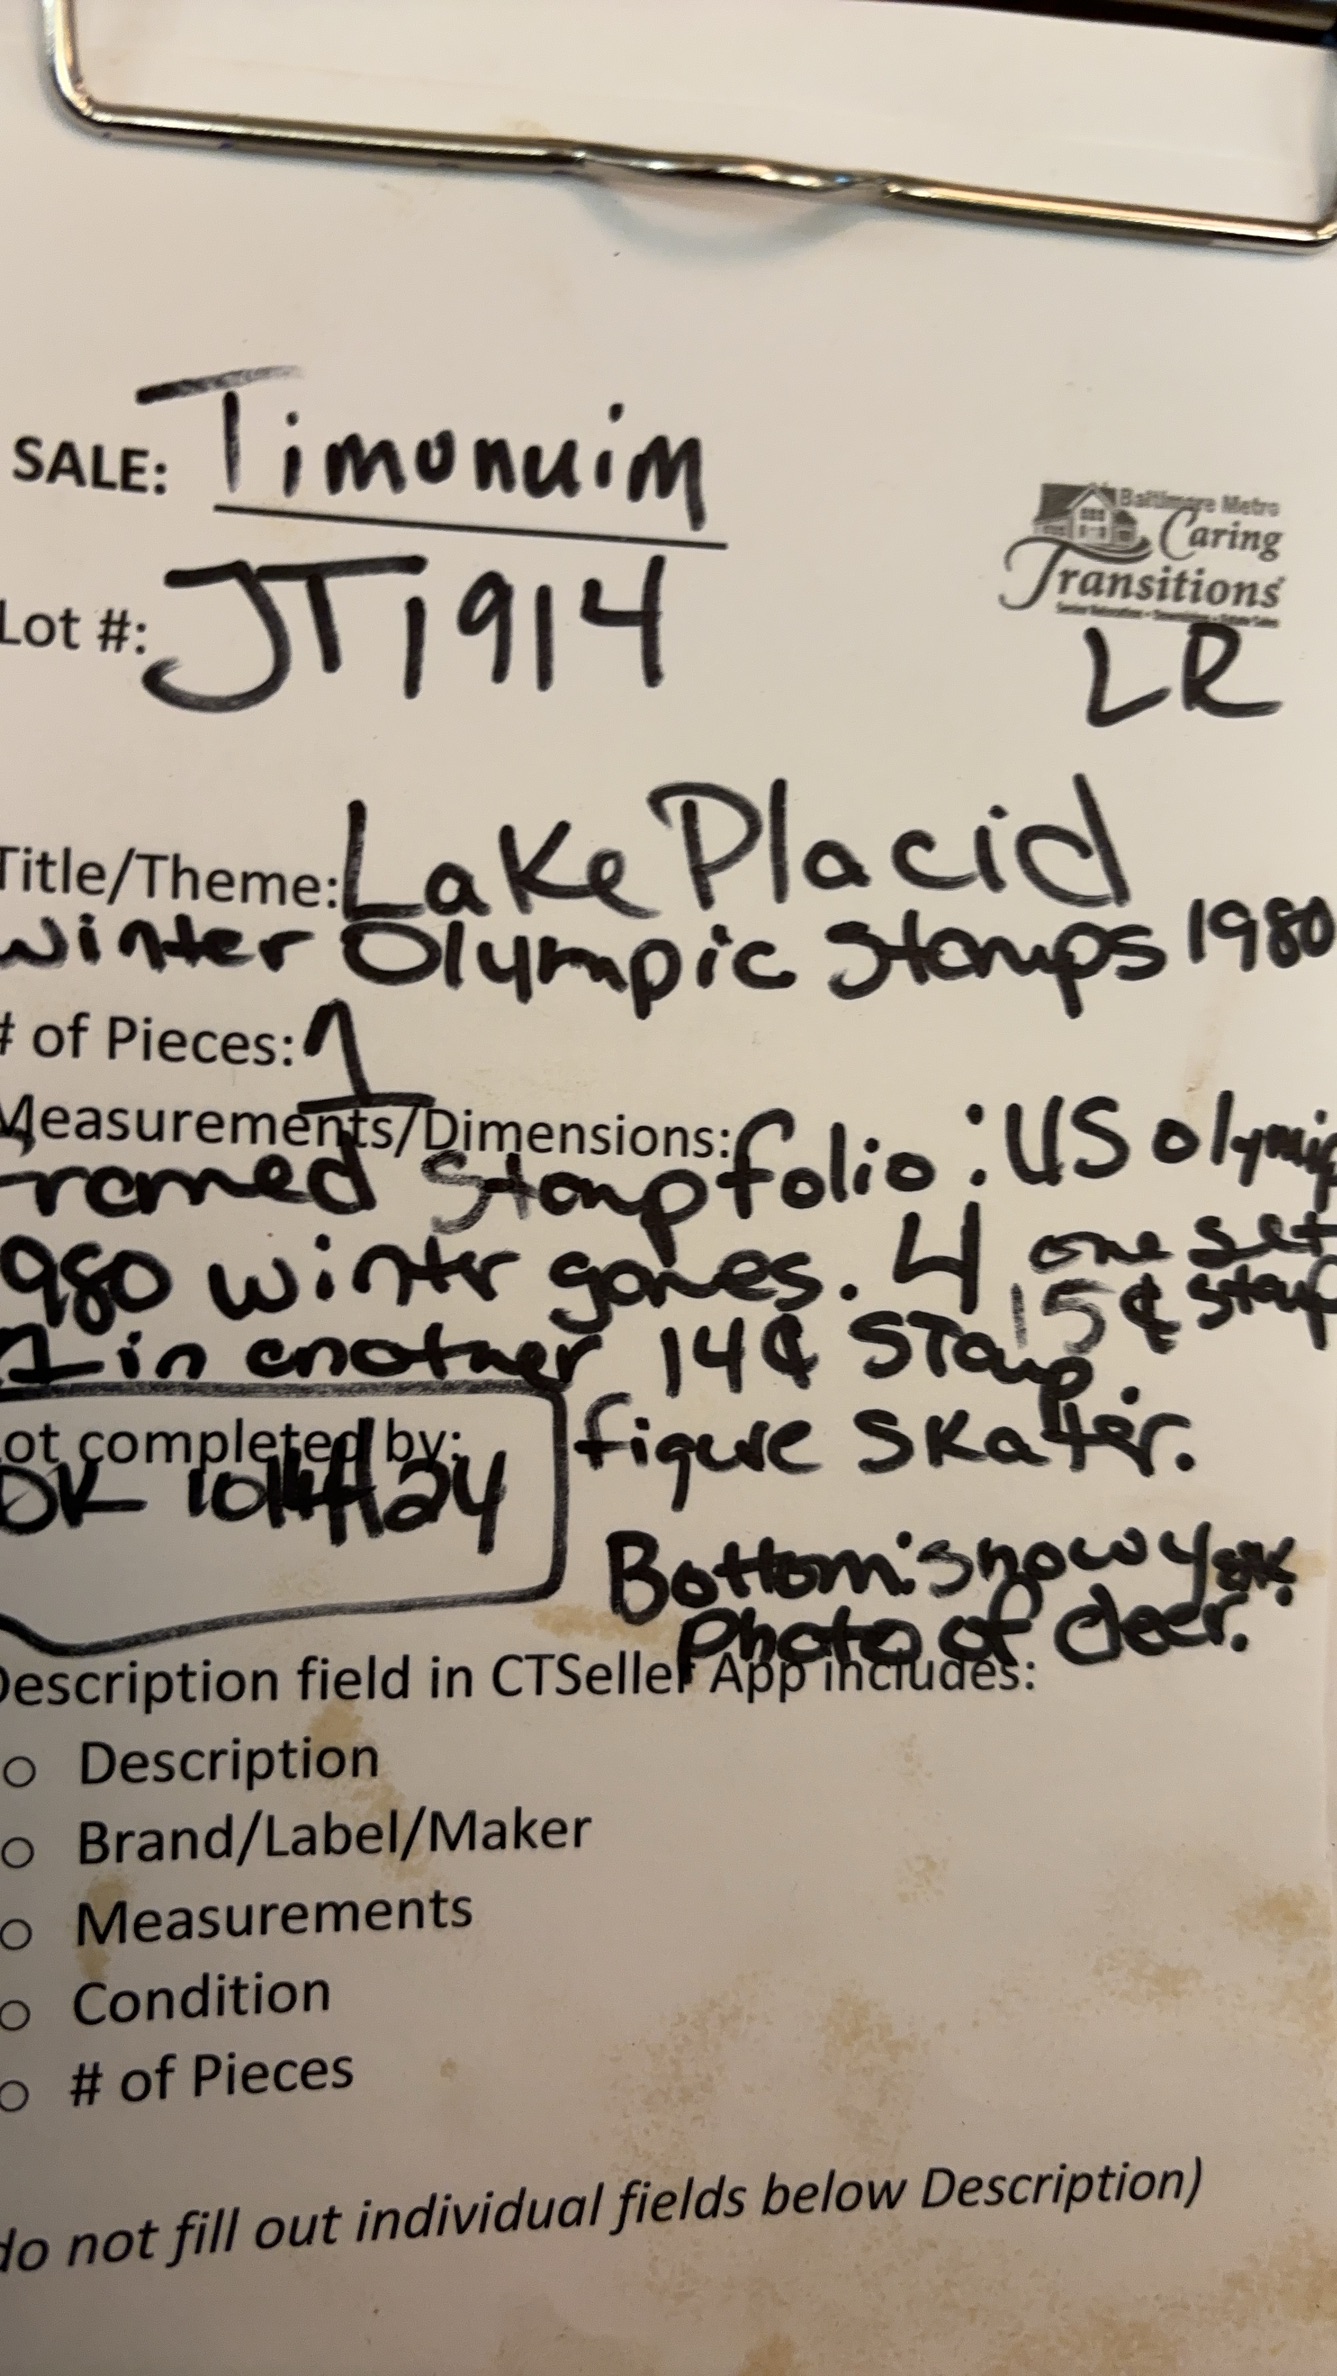 SALE: Timonuim
Baltimore Metro
Caring
Transitions
Lot #: JT1914
LR
Title/Theme: Lake Placid
Winter Olympic Stamps 1980
# of Pieces: 1
Measurements/Dimensions: folio: US Olympic
Framed Stamp
1980 winter games. 4 one set
15¢ stamp
1 in another 14¢ Stamp.
figure skater.
Lot completed by:
Bottom: snowy
Photo of deer.
Description field in CTSeller App includes:
o Description
o Brand/Label/Maker
o Measurements
o Condition
o # of Pieces
do not fill out individual fields below Description)